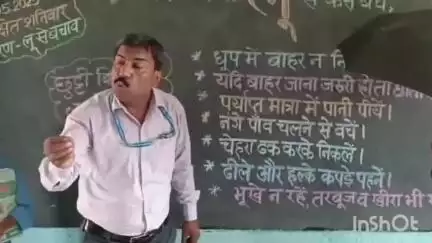 .05.2025
क्षित शनिवार
लू से बचाव
से कैसे बचें,
छुट्टी
* धूप में बाहर न
* यदि बाहर जाना जरुरी हो तो
* पर्याप्त मात्रा में पानी पीयें।
* नंगे पाँव चलने से बचें।
* चेहरा ढक करके निकलें।
* ढीले और हल्के कपड़े पहनें।
* भूखे न रहें, तरबूज व खीरा भी
InShOt